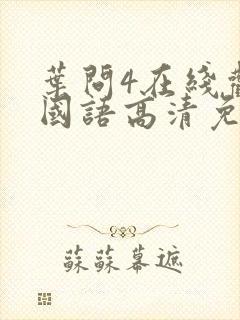 葉問4在綫
國語高清免
蘇蘇幕遮